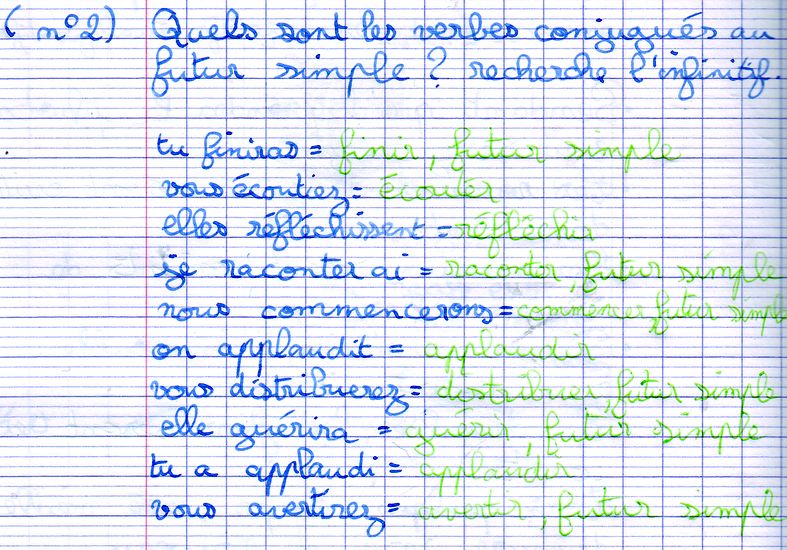 ( n°2) Quels sont les verbes conjugués au
futur simple ? recherche l'infinitif.
tu finiras = finir, futur simple
vous écoutiez = écouter
elles réfléchissent = réfléchir
je raconterai = raconter, futur simple
nous commencerons = commencer, futur simple
on applaudit = applaudir
vous distribuerez = distribuer, futur simple
elle guérira = guérir, futur simple
tu a applaudi = applaudir
vous avertirez = avertir, futur simple